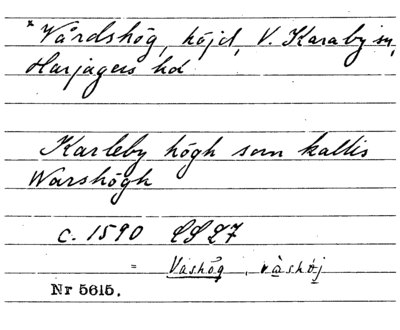 * Vårdshög, höjd, V. Karaby sn,
Harjagers hd
Karleby högh som kallis
Warshögh
c. 1590 LSL7
= Vashög, vàshöj
Nr 5615.